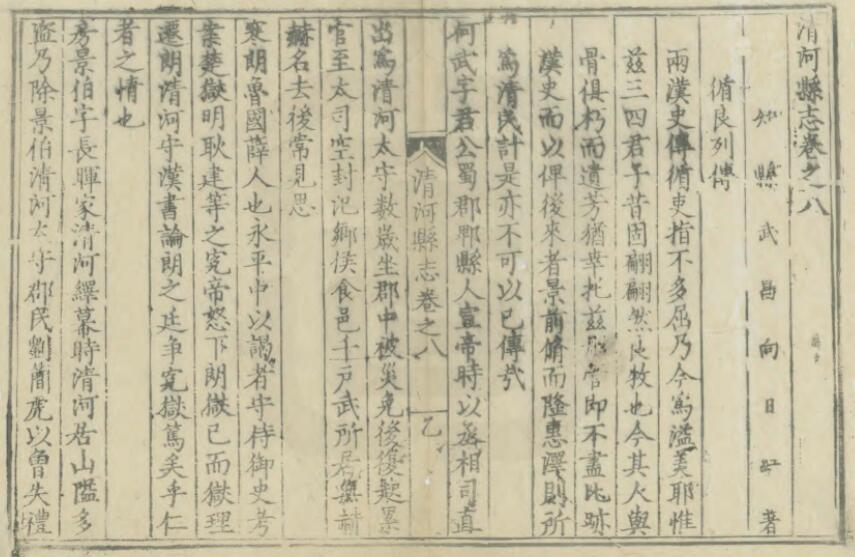 清河縣志卷之八
知縣武昌向日紅著
循良列傳
兩漢史傳循吏指不多屈乃今篤溢美耶惟
兹三四君子昔固翩翩然良牧也今其人與
骨俱朽而遺芳猶葷扥兹服官即不盡比跡
漢史而以俾後來者景前脩而隆惠澤則所
篤清民計是亦不可以已傳哉
何武字君公蜀郡郫縣人宣帝時以丞相司直
清河縣志卷之八
乙
出爲清河太守數歲坐郡中被災免後復起累
官至大司空封氾鄉侯食邑千戸武所居無赫
赫名去後常見思
寒朗魯國薛人也永平中以謁者守侍御史考
案楚獄明耿建等之寃帝怒下朗獄已而獄理
遷朗清河守漢書論朗之廷爭寃獄篤矣乎仁
者之情也
房景伯字長暉家清河繹幕時清河居山隘多
盗乃除景伯清河太守郡民劉簡虎以魯失禮